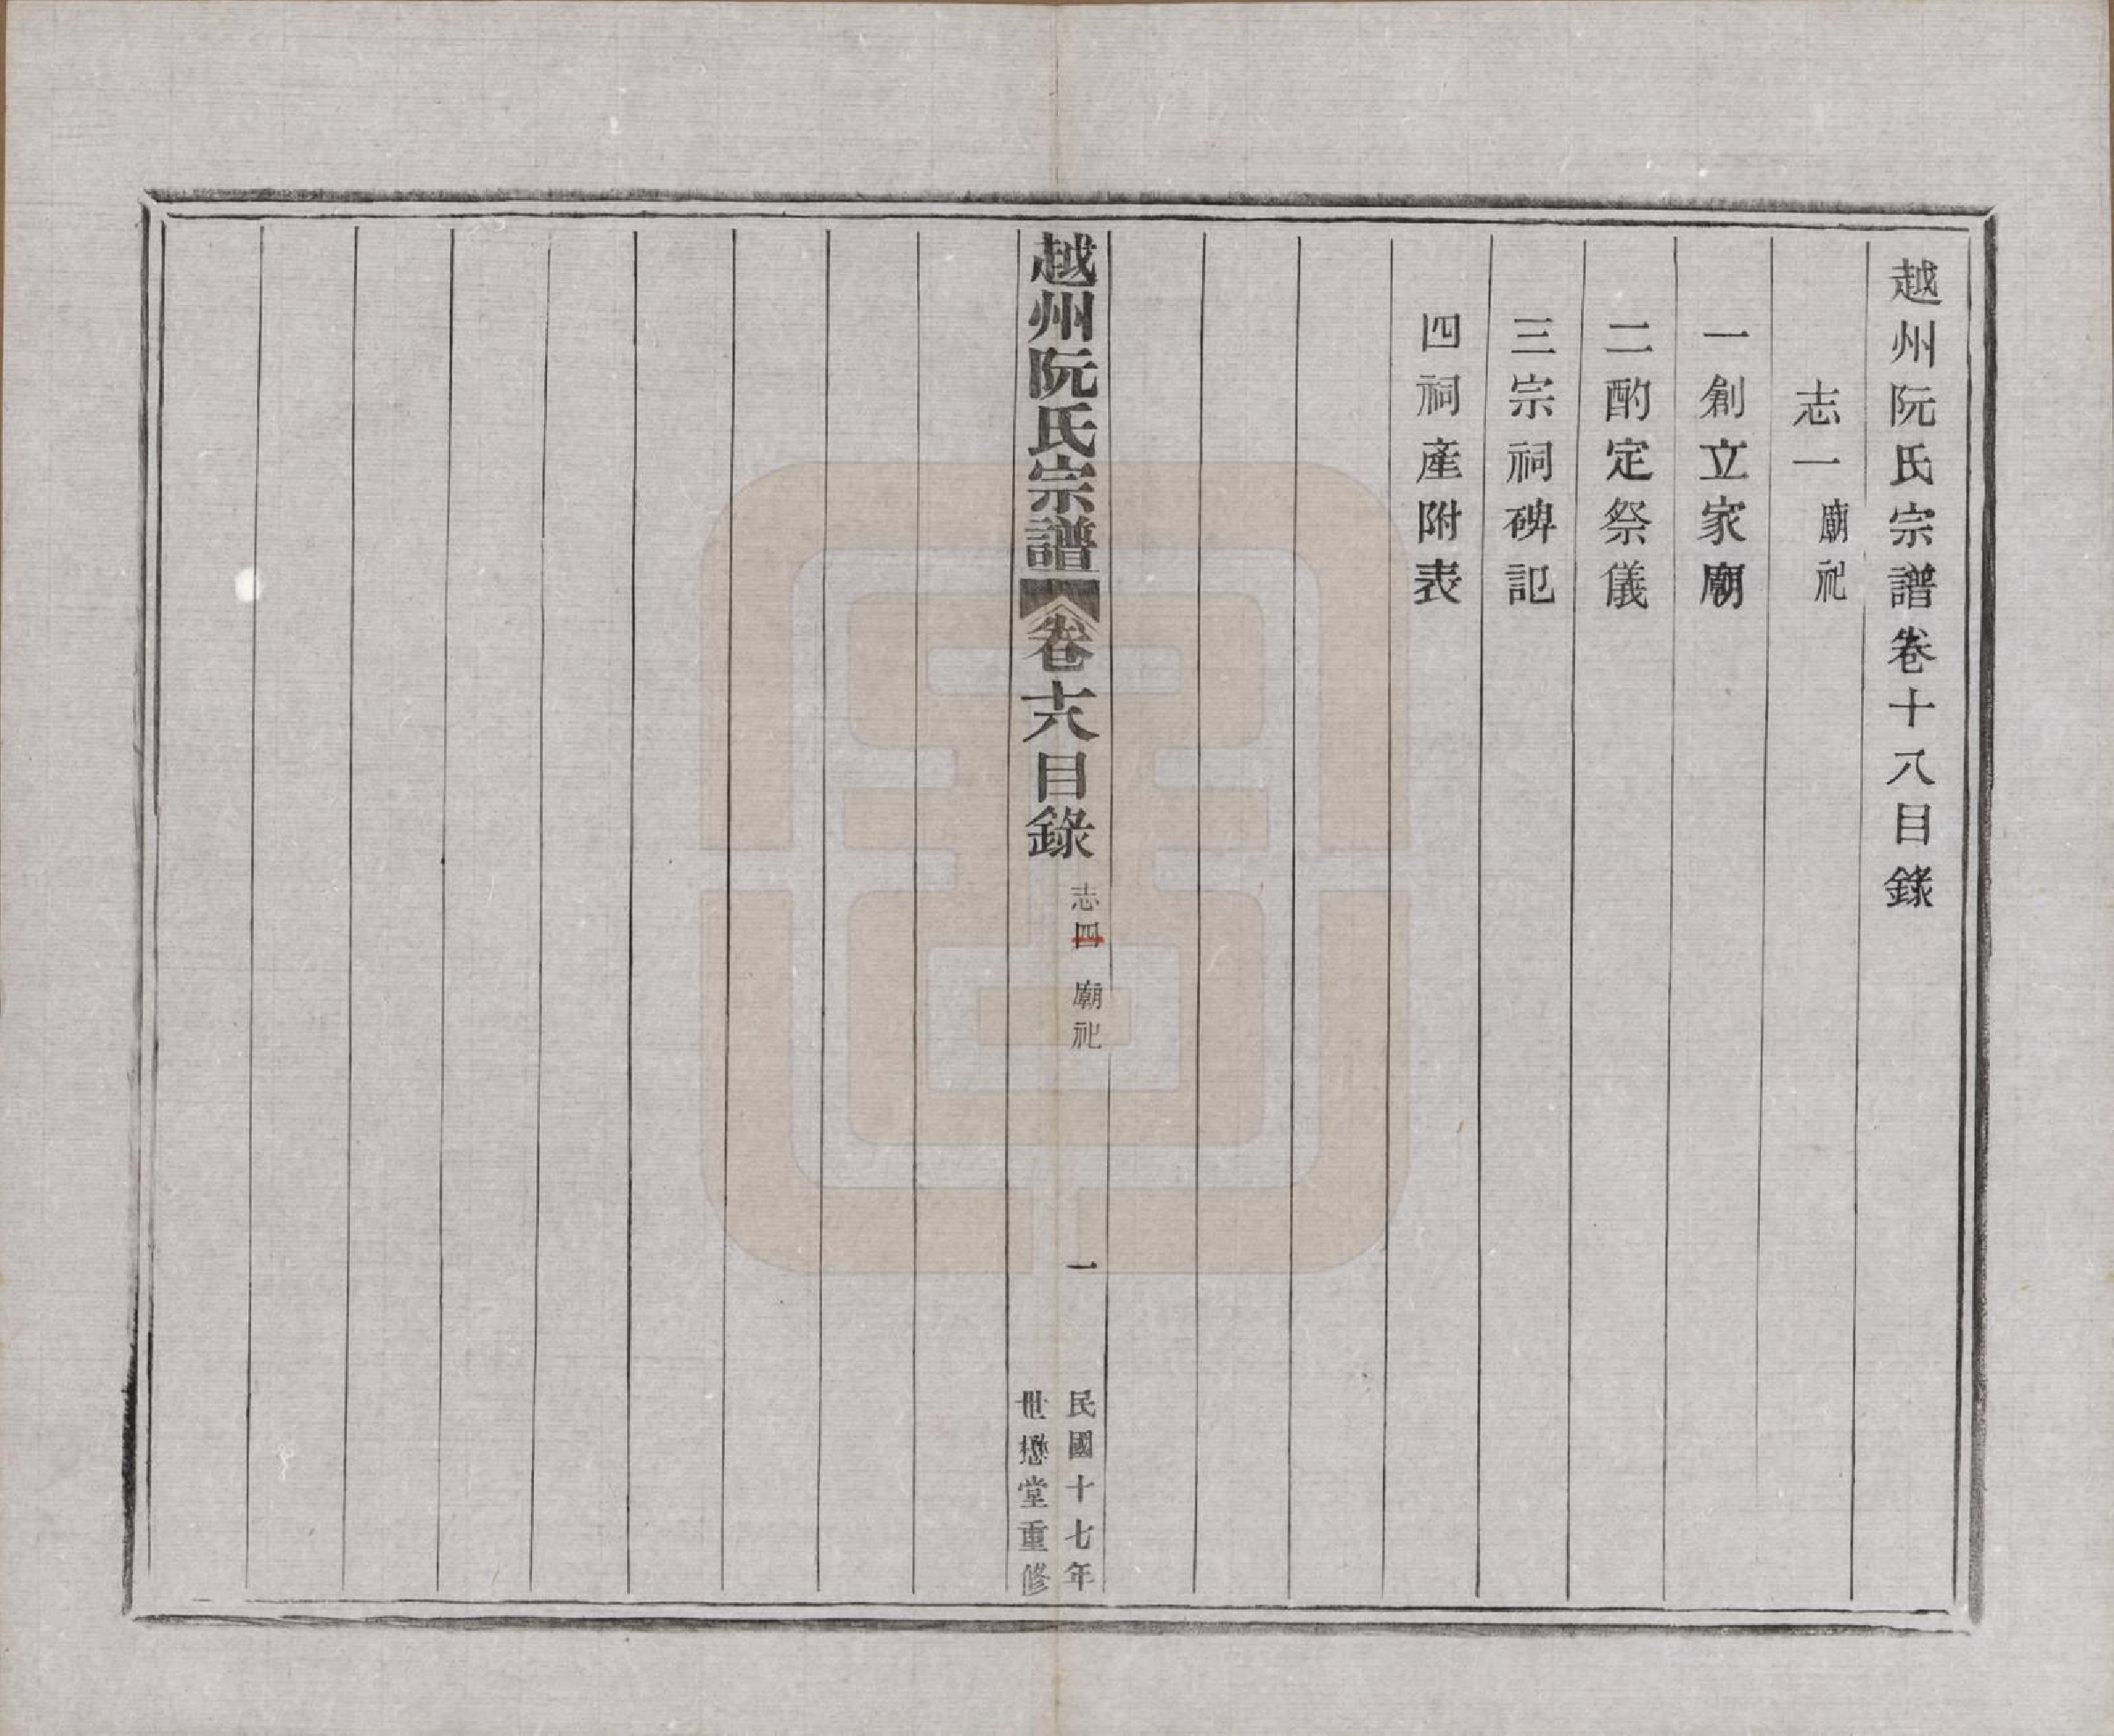 越州阮氏宗譜卷十八目錄
志一 廟祀
一創立家廟
二酌定祭儀
三宗祠碑記
四祠產附表
越州阮氏宗譜 卷十八目錄 志四 廟祀 一
民國十七年
世懋堂重修